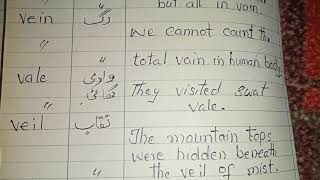 but all in vain.
vein رگ We cannot count th
" " total vain in human body
vale وادی گھاٹی They visited swat
" " vale.
veil نقاب The mountain tops
were hidden beneath
" the veil of mist.